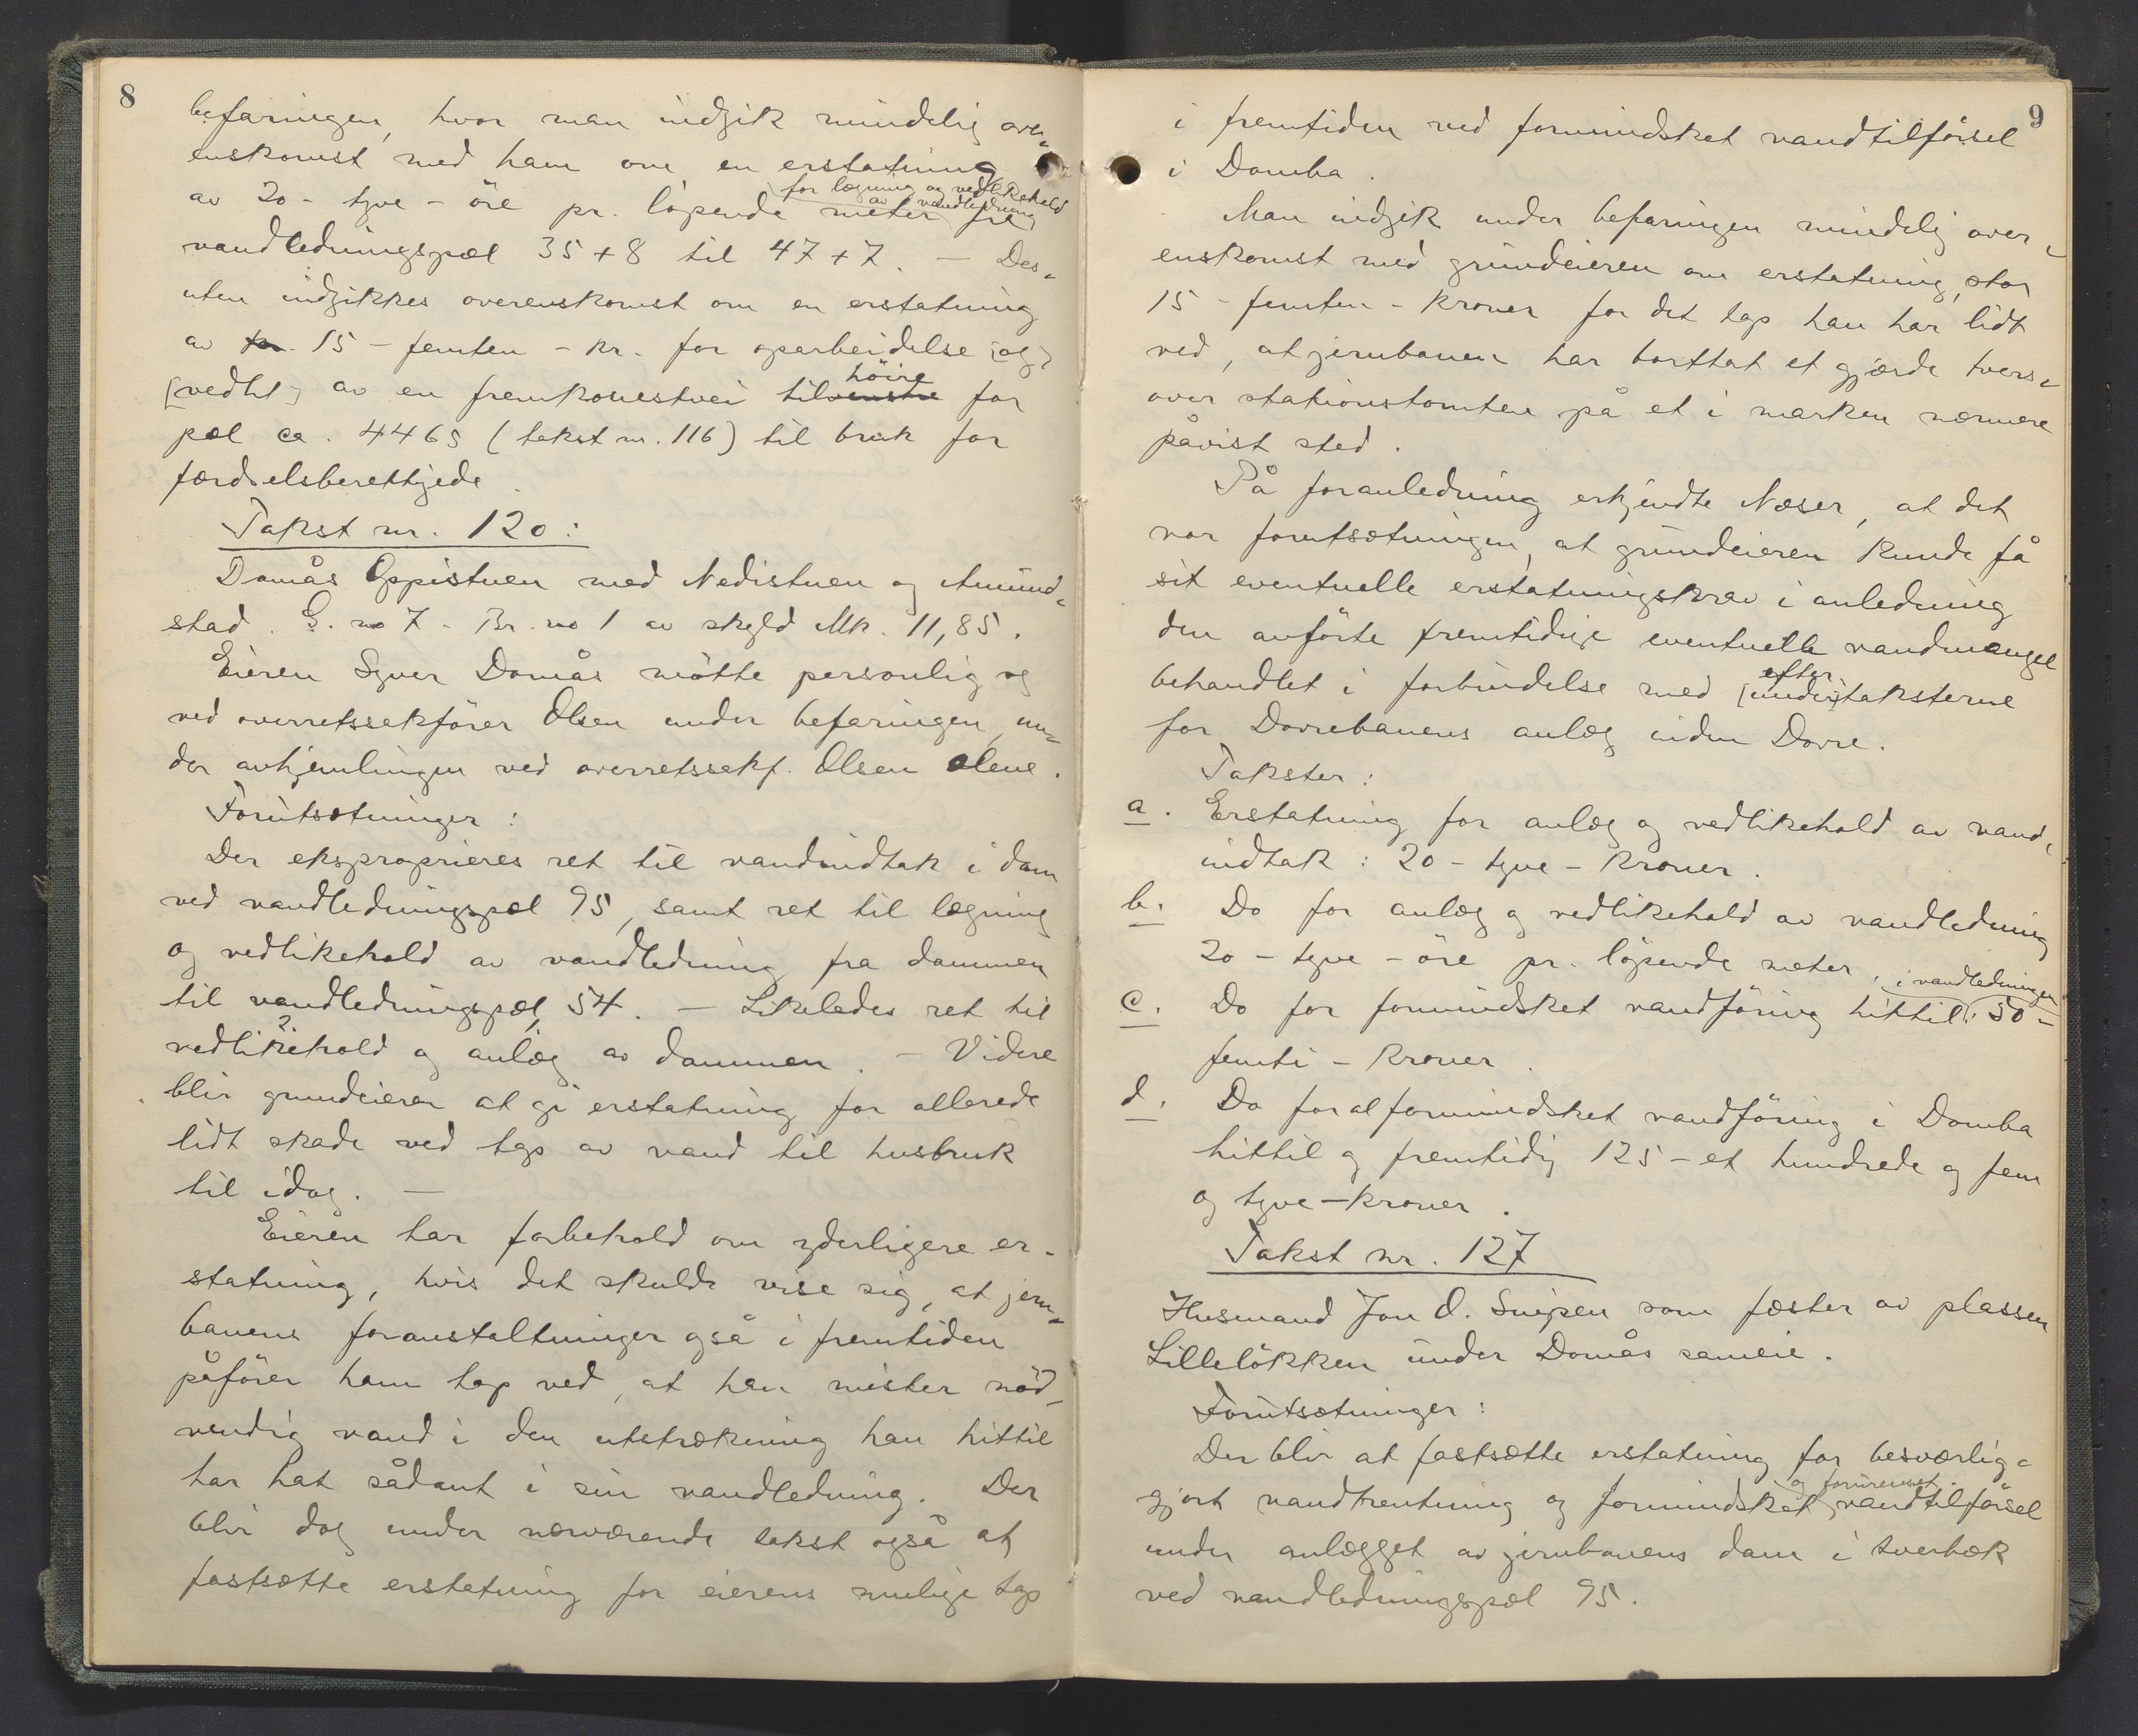 8
befaringen, hvor man indgik mindelig over-
enskomst med ham om en erstatning
for lægning og vedlikehold
av vandledning
av 20 - tyve - øre pr. løpende meter fra
vandledningspæl 35 + 8 til 47 + 7. — Des-
uten indgikkes overenskomst om en erstatning
av kr. 15 - femten - kr. for oparbeidelse [og]
høire
[vedlh] av en fremkomstvei til venstre for
pæl ca. 4465 (takst nr. 116) til bruk for
færdselsberettigede.
Takst nr. 120:
Domås Oppistuen med Nedistuen og Amund-
stad. G. no 7 - Br. no 1 av skyld Mk. 11,85.
Eieren Syver Domås møtte personlig og
ved overretssakfører Olsen under befaringen, un-
der avhjemlingen ved overretssakf. Olsen alene.
Forutsætninger:
Der eksproprieres ret til vandindtak i dam
ved vandledningspæl 95, samt ret til lægning
og vedlikehold av vandledning fra dammen
til vandledningspæl 54. — Likeledes ret til
vedlikehold og anlæg av dammen. — Videre
blir grundeieren at gi erstatning for allerede
lidt skade ved tap av vand til husbruk
til idag. —
Eieren har forbehold om yderligere er-
statning, hvis det skulde vise sig, at jern-
banens foranstaltninger også i fremtiden
påfører ham tap ved, at han mister nød-
vendig vand i den utstrækning han hittil
har hat sådant i sin vandledning. Der
blir dog under nærværende takst også at
fastsætte erstatning for eierens mulige tap
9
i fremtiden ved formindsket vandtilførsel
i Domba.
Man indgik under befaringen mindelig over-
enskomst med grundeieren om erstatning, stor
15 - femten - kroner for det tap han har lidt
ved, at jernbanen har borttat et gjærde tvers-
over stationstomten på et i marken nærmere
påvist sted.
På foranledning erkjendte Næser, at det
var forutsætningen, at grundeieren kunde få
sit eventuelle erstatningskrav i anledning
den anførte fremtidige eventuelle vandmangel
efter
behandlet i forbindelse med [under] taksterne
for Dovrebanens anlæg inden Dovre.
Takster:
a. Erstatning for anlæg og vedlikehold av vand-
indtak: 20 - tyve - kroner.
b. Do for anlæg og vedlikehold av vandledning
20 - tyve - øre pr. løpende meter.
i vandledningen
c. Do for formindsket vandføring hittil: 50 -
femti - kroner.
d. Do for al formindsket vandføring i Domba
hittil og fremtidig 125 - et hundrede og fem
og tyve - kroner.
Takst nr. 127
Husmand Jon O. Snipen som fæster av plassen
Lilleløkken under Domås sameie.
Forutsætninger:
Der blir at fastsætte erstatning for besværlig-
og forurenset
gjort vandhentning og formindsket vandtilførsel
under anlægget av jernbanens dam i tverbæk
ved vandledningspæl 95.